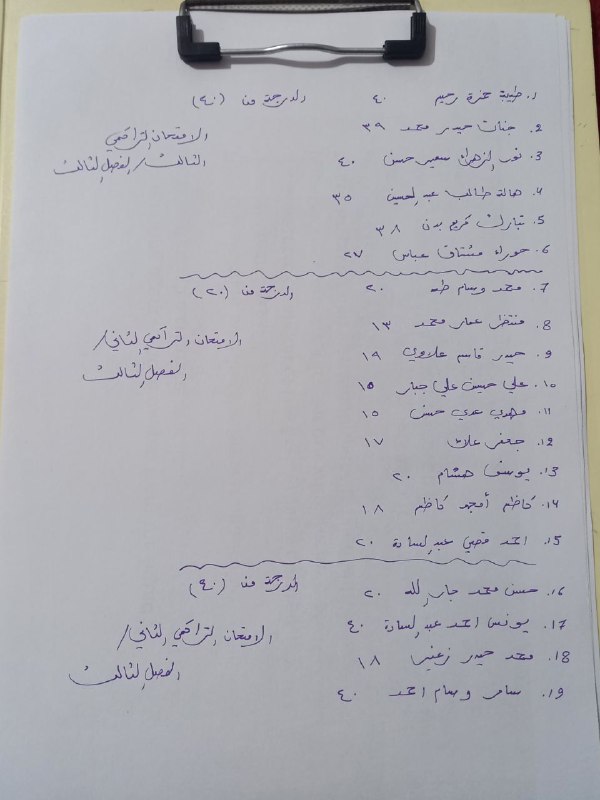 ١. طيبة حمزة رحيم ٤٠ الدرجة من (٤٠)
2. جنات حيدر محمد ٣٩ الامتحان التراكمي
3. نور الزهراء سعير حسن ٤٠ الثالث / الفصل الثالث
4. هالة طالب عبد الحسين ٣٥
5. تبارك كريم بدن ٣٨
6. حوراء مشتاق عباس ٢٧
7. محمد وسام طه ٢٠ الدرجة من (٢٠)
8. منتظر عمار محمد ١٣ الامتحان التراكمي الثاني /
9. حيدر قاسم علاوي ١٩ الفصل الثالث
10. علي حسين علي جبار ١٥
11. مهدي عدي حسن ١٥
12. جعفر علاء ١٧
13. يوسف هشام ٢٠
14. كاظم أمجد كاظم ١٨
15. احمد قصي عبد السادة ٢٠
16. حسن محمد جار الله ٢٠ الدرجة من (٤٠)
17. يونس احمد عبد السادة ٤٠ الامتحان التراكمي الثاني /
18. محمد حيدر ١٨ الفصل الثالث
19. سامر وسام احمد ٤٠